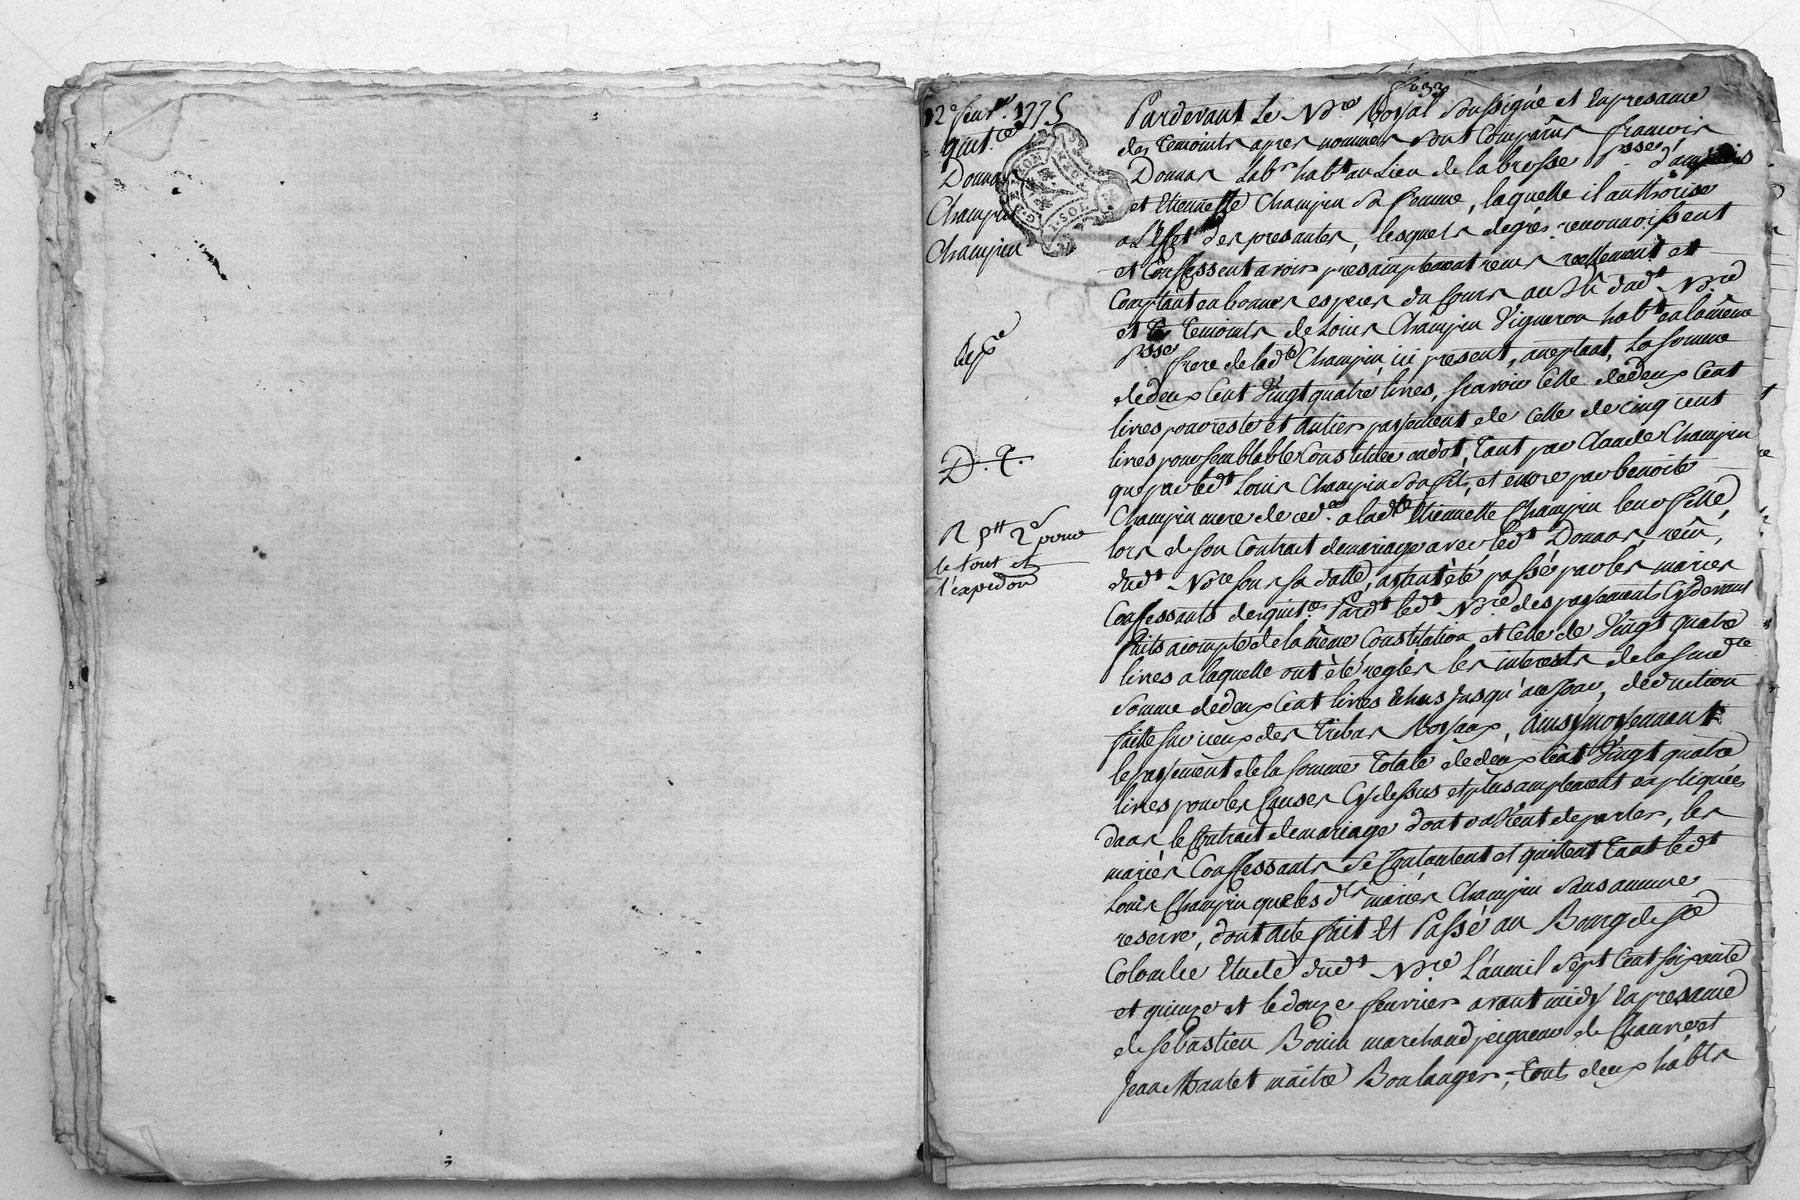 fo 33
12e feur. 1775
quit.ce
Donnas
Champin
Champin
GEN LYON
1 SOL
Exp.e
D. q.
R ptt 2d pour
le tout et
l'expedon
Pardevant Le No.re Royal Soussigné et En presance
des temoints apres nommés sont Comparûs francois
Donnas Lab.r hab.t au Lieu de la bresse p.sse d'amplepuis
et Etiennette Champin Sa femme, laquelle il authorise
a L'effet des presantes, lesquels de grés reconnoissent
et Confessent avoir presamptement recus reellement et
Comptant en bonnes especes du Cours au Vû dud.t No.re
et temoints de Loüis Champin Vigneron hab.t en la même
p.sse frere de lad.te Champin, ici present, acceptant, La somme
de deux Cent Vingt quatre livres, scavoir Celle de deux Cent
livres pour reste et Entier payement de celle de cinq cent
livres pour semblable Constituée en dot, tant par Claude Champin
que par led.t Louis Champin Son fils, et encore par benoite
Champin mere de ced.r a lad.te Etiennette Champin leur fille
lors de Son Contrat de mariage avec led.t Donnas, recû,
dud.t No.re Sous Sa datte, ayant été passé par les mariés
Confessants des quit.ces Pard.t led.t No.re des payements Cydevant
faits acompte de la même Constitution et Celle de Vingt quatre
livres a laquelle ont été reglés les interests de la susd.te
Somme de deux Cent livres Echus jusqu'a ce jour, deduction
faitte sur iceux des Tribus Royaux, Ainsy moyennant
le payement de la somme Totale de deux Cent Vingt quatre
livres pour les Causes Cy dessus et plus amplement expliquées
dans le Contrat de mariage dont on Vient de parler, les
mariés Confessants Se Contentent et quittent Tant led.t
Loüis Champin que les d.ts mariés Champin Sans aucune
reserve, dont Acte fait Et Passé au Bourg de S.te
Colombe Etude dud.t No.re L'an mil Sept Cent soixante
et quinze et le douze feuvrier avant midy En presance
de Sebastien Bonin marchand peigneur de Chanvre et
Jean Mantet maitre Boulanger, tous deux hab.ts